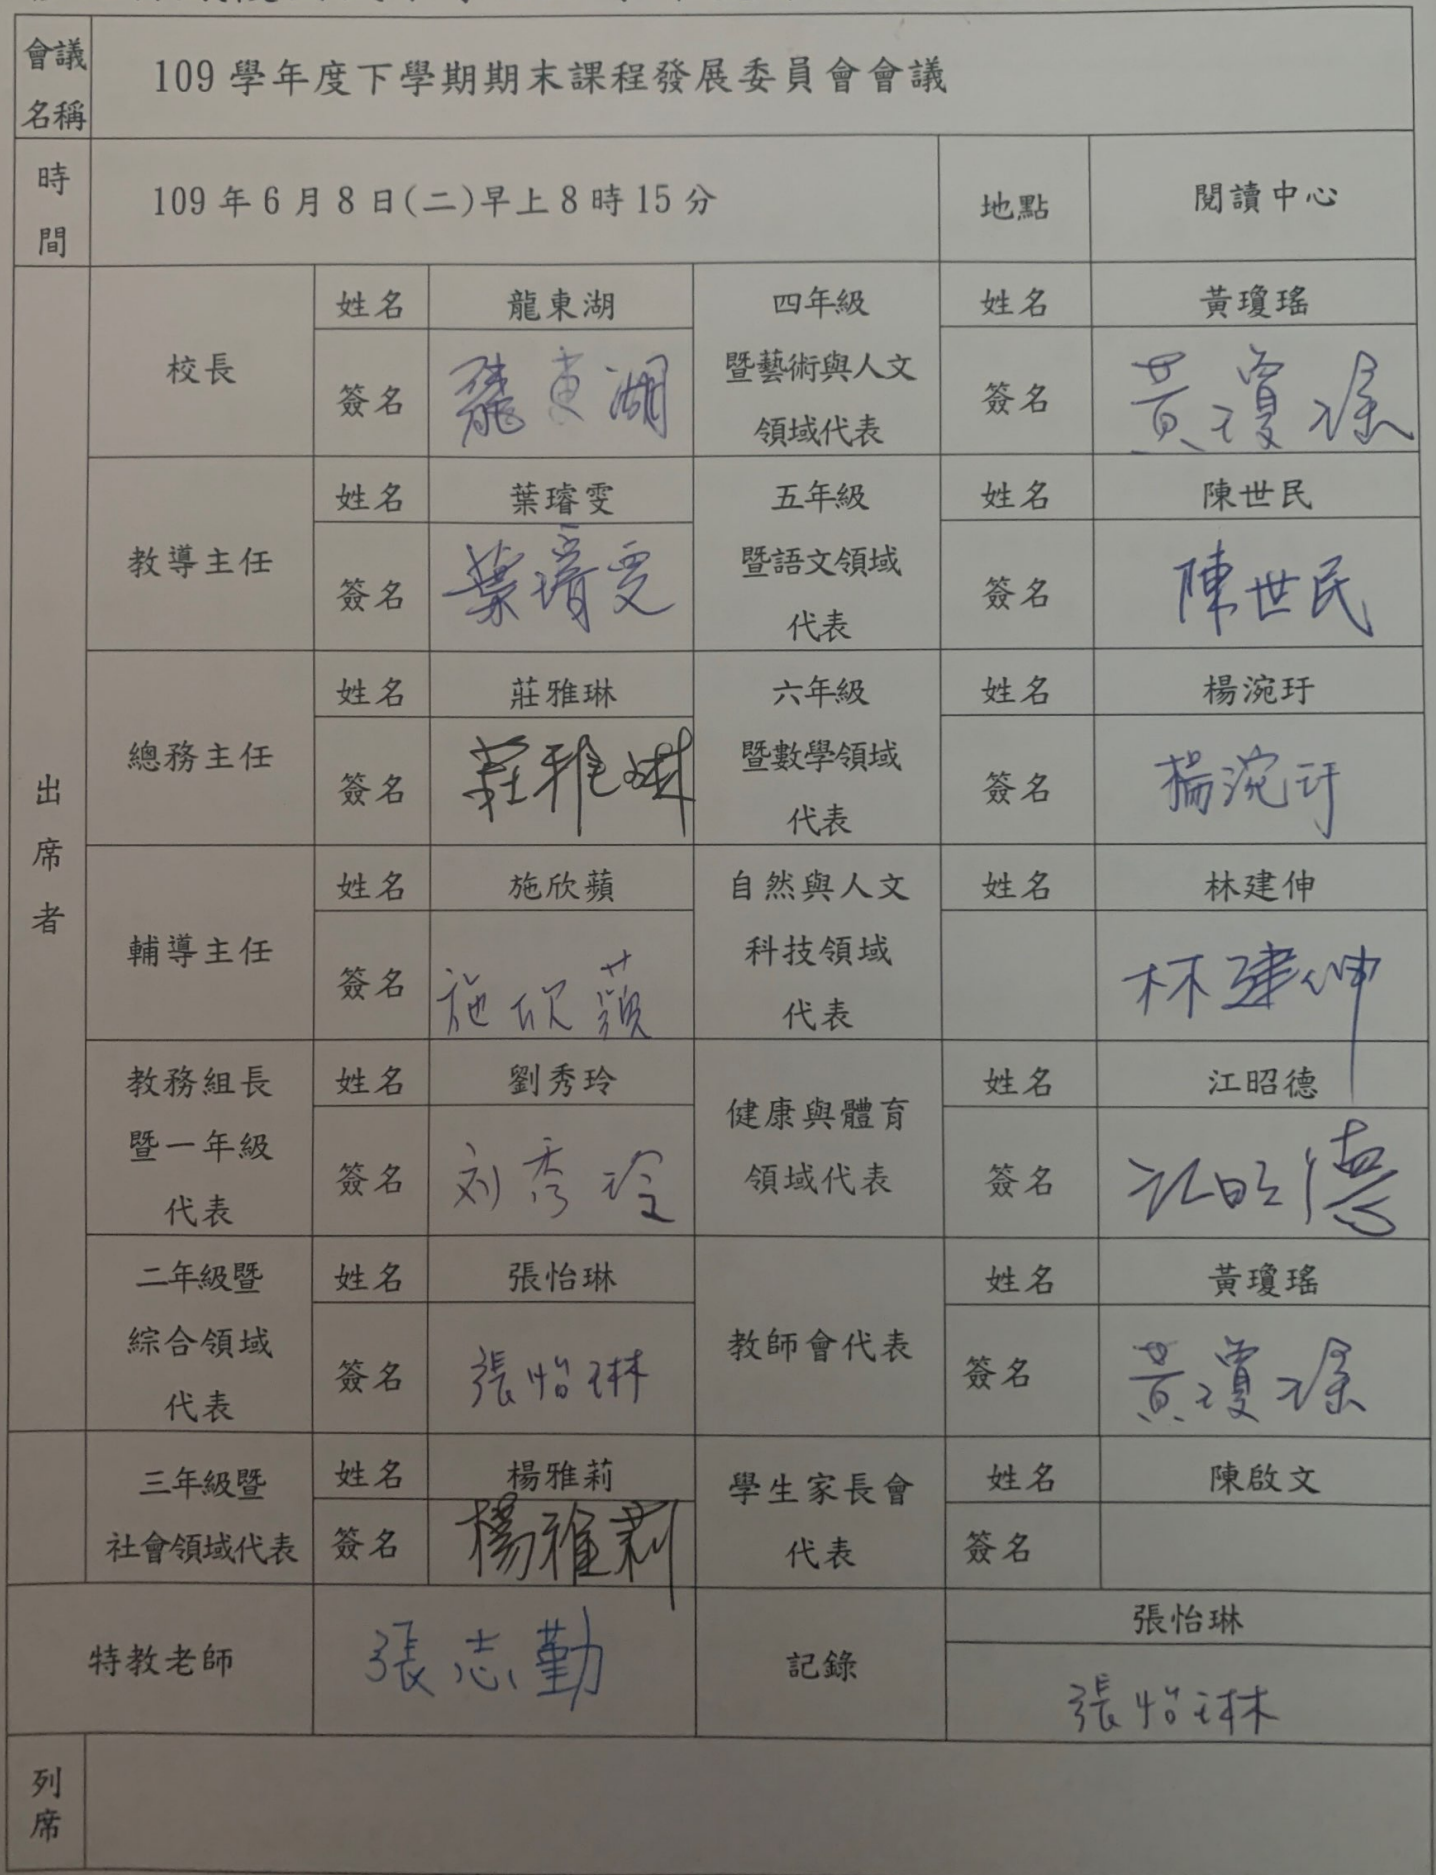 會議名稱 109學年度下學期期末課程發展委員會會議
時間 109年6月8日(二)早上8時15分 地點 閱讀中心
出席者
校長 姓名 龍東湖 四年級暨藝術與人文領域代表 姓名 黃瓊瑤
簽名 龍東湖 簽名 黃瓊瑤
教導主任 姓名 葉璿雯 五年級暨語文領域代表 姓名 陳世民
簽名 葉璿雯 簽名 陳世民
總務主任 姓名 莊雅琳 六年級暨數學領域代表 姓名 楊涴玗
簽名 莊雅琳 簽名 楊涴玗
輔導主任 姓名 施欣蘋 自然與人文科技領域代表 姓名 林建伸
簽名 施欣蘋 林建伸
教務組長暨一年級代表 姓名 劉秀玲 健康與體育領域代表 姓名 江昭德
簽名 刘秀玲 簽名 江昭德
二年級暨綜合領域代表 姓名 張怡琳 教師會代表 姓名 黃瓊瑤
簽名 張怡琳 簽名 黃瓊瑤
三年級暨社會領域代表 姓名 楊雅莉 學生家長會代表 姓名 陳啟文
簽名 楊雅莉 簽名
特教老師 張志勤 記錄 張怡琳
張怡琳
列席